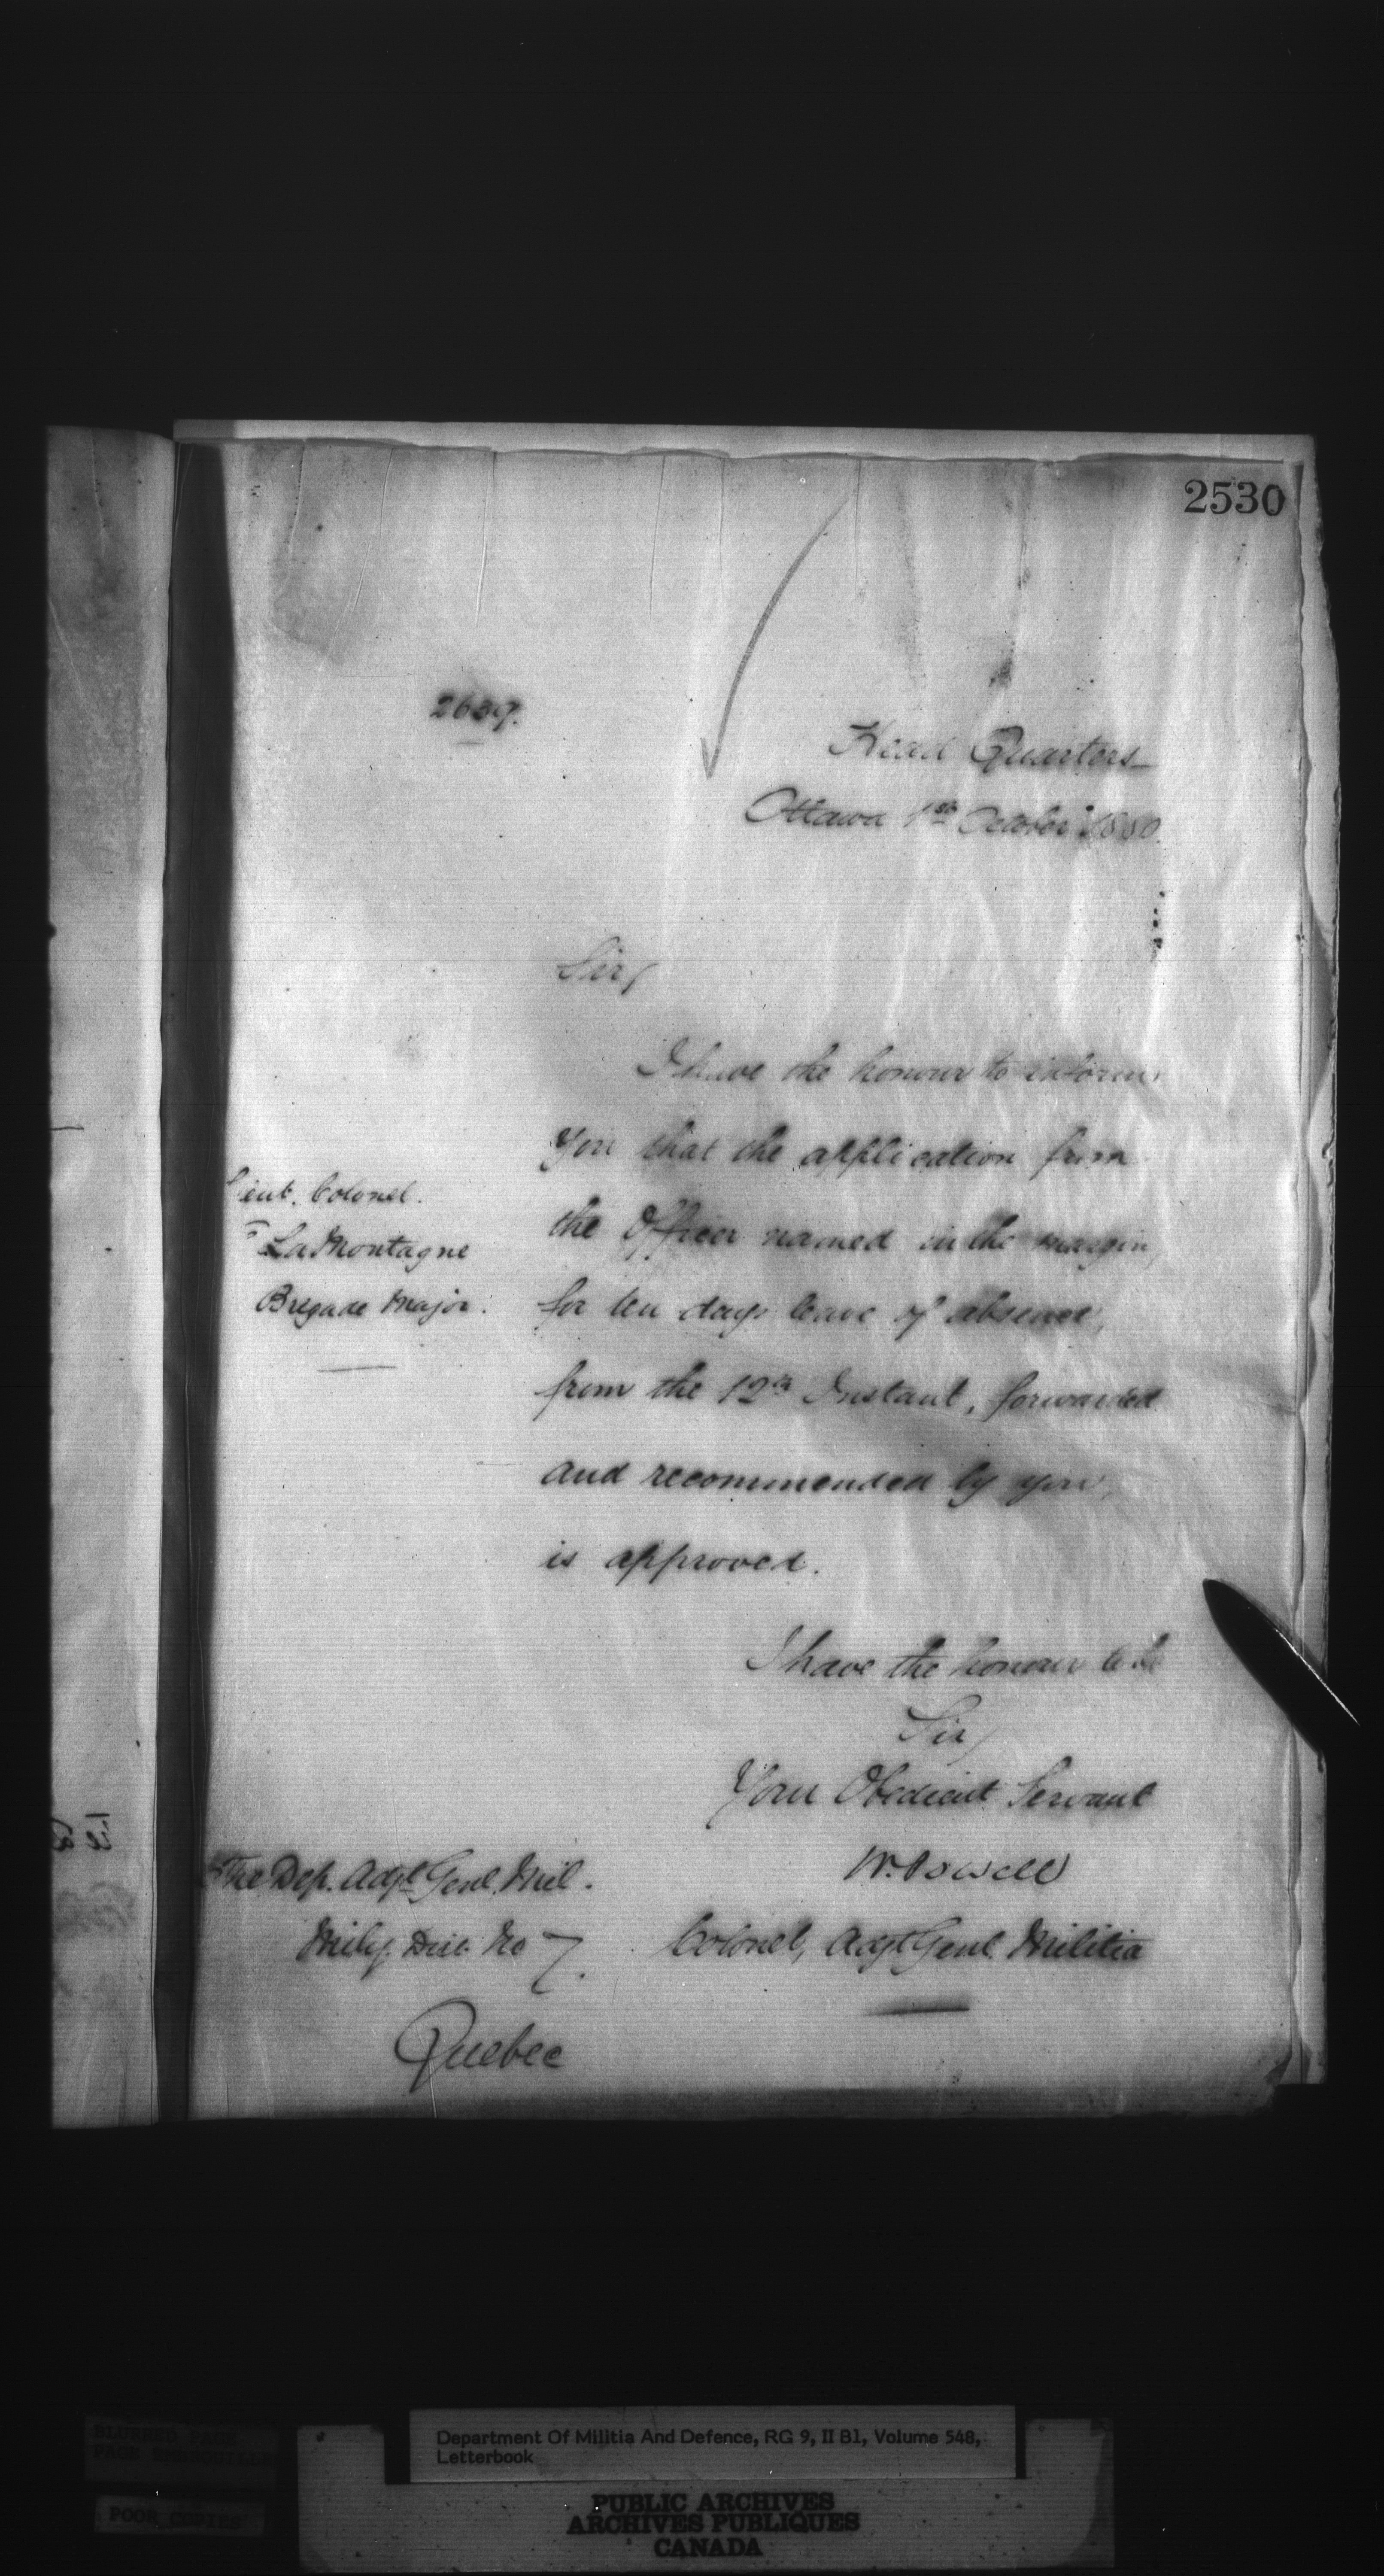 2530
2639.
Head Quarters
Ottawa 1st October 1880.
Sir,
I have the honour to inform
you that the application from
the Officer named in the margin,
for ten days leave of absence,
from the 12th Instant, forwarded
and recommended by you,
is approved.
Lieut. Colonel.
LaMontagne
Brigade Major.
I have the honour to be
Sir,
Your Obedient Servant
W. Powell
Colonel, Adjt Genl. Militia
The Dep. Adjt Genl. Mil.
Mily. Dist. No 7.
Quebec
BLURRED PAGE
PAGE EMBROUILLEE
POOR COPIES
Department Of Militia And Defence, RG 9, II B1, Volume 548,
Letterbook
PUBLIC ARCHIVES
ARCHIVES PUBLIQUES
CANADA